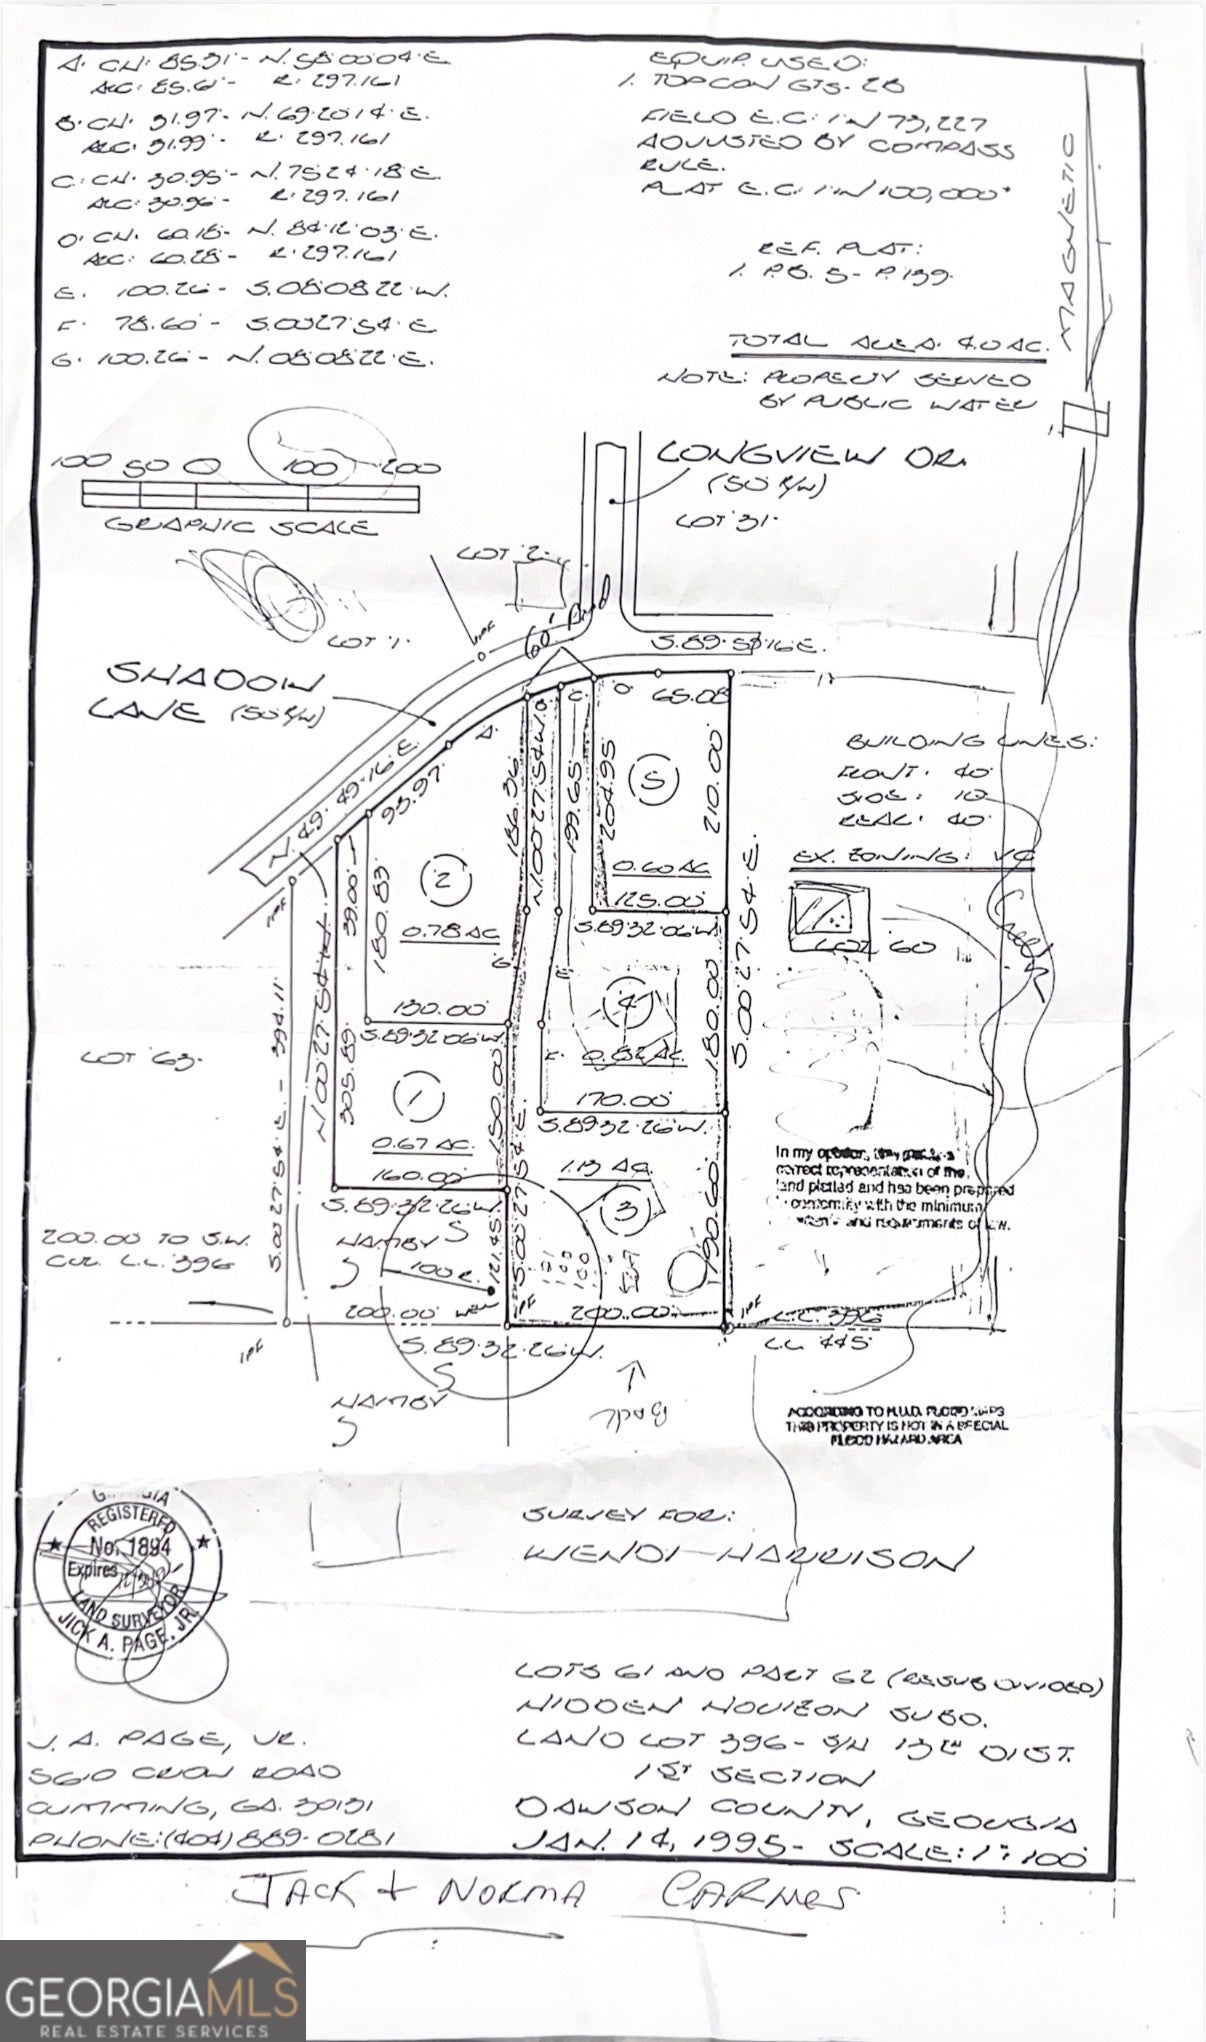 A. CH: 85.31'- N.58°00'04"E.
ARC: 85.61'- R: 297.161
B. CH: 31.97'- N.69°20'14"E.
ARC: 31.99'- R: 297.161
C. CH: 30.95'- N.75°24'18"E.
ARC: 30.96'- R: 297.161
D. CH: 60.18'- N.84°12'03"E.
ARC: 60.28'- R: 297.161
E. 100.26'- S.08°08'22"W.
F. 78.60'- S.00°27'54"E.
G. 100.26'- N.08°08'22"E.
EQUIP. USED:
1. TOPCON GTS-2B
FIELD E.C: 1 IN 73,227
ADJUSTED BY COMPASS
RULE.
PLAT E.C: 1 IN 100,000+
REF. PLAT:
1. P.B. 5- P. 139
TOTAL AREA: 4.0 AC.
NOTE: PROPERTY SERVED
BY PUBLIC WATER
MAGNETIC
100 50 0 100 200
GRAPHIC SCALE
LONGVIEW DR.
(50' R/W)
LOT 31
LOT 2
LOT 1
60' Road
S.89°58'16"E.
SHADOW
LANE (50' R/W)
N.49°49'16"E.
93.97'
A.
B.
C.
D.
65.08'
186.36'
N.00°27'54"W.
199.65'
204.95'
210.00'
5
0.60 AC
125.00'
S.89°32'06"W.
S.00°27'54"E.
BUILDING LINES:
FRONT: 40'
SIDE: 10'
REAR: 40'
EX. ZONING: VC
LOT 60
Creek
39.00'
180.83'
2
0.78 AC
G.
E.
130.00'
S.89°32'06"W.
4
0.82 AC.
F.
180.00'
170.00'
S.89°32'26"W.
LOT 63
S.00°27'54"E. - 394.11'
N.00°27'54"W.
305.89'
1
0.67 AC.
160.00'
S.89°32'26"W.
150.00'
S.00°27'54"E.
1.13 AC.
3
190.60'
121.45'
HAMBY
100' R.
WELL
200.00'
200.00'
S.89°32'26"W.
IPF
IPF
IPF
IPF
IPF
200.00' TO S.W.
COR. L.L. 396
L.L. 396
L.L. 445
HAMBY
Back
In my opinion, this plat is a
correct representation of the
land platted and has been prepared
in conformity with the minimum
standards and requirements of law.
ACCORDING TO H.U.D. FLOOD MAPS
THIS PROPERTY IS NOT IN A SPECIAL
FLOOD HAZARD AREA
GEORGIA
REGISTERED
No. 1894
Expires
LAND SURVEYOR
JICK A. PAGE, JR.
SURVEY FOR:
WENDI HARRISON
LOTS 61 AND PART 62 (RESUBDIVIDED)
HIDDEN HORIZON SUBD.
LAND LOT 396- S/H 13TH DIST.
1ST SECTION
DAWSON COUNTY, GEORGIA
JAN. 14, 1995- SCALE: 1": 100'
J. A. PAGE, JR.
5610 CROW ROAD
CUMMING, GA. 30131
PHONE: (404) 889-0281
JACK & NORMA CARNES
GEORGIAMLS
REAL ESTATE SERVICES